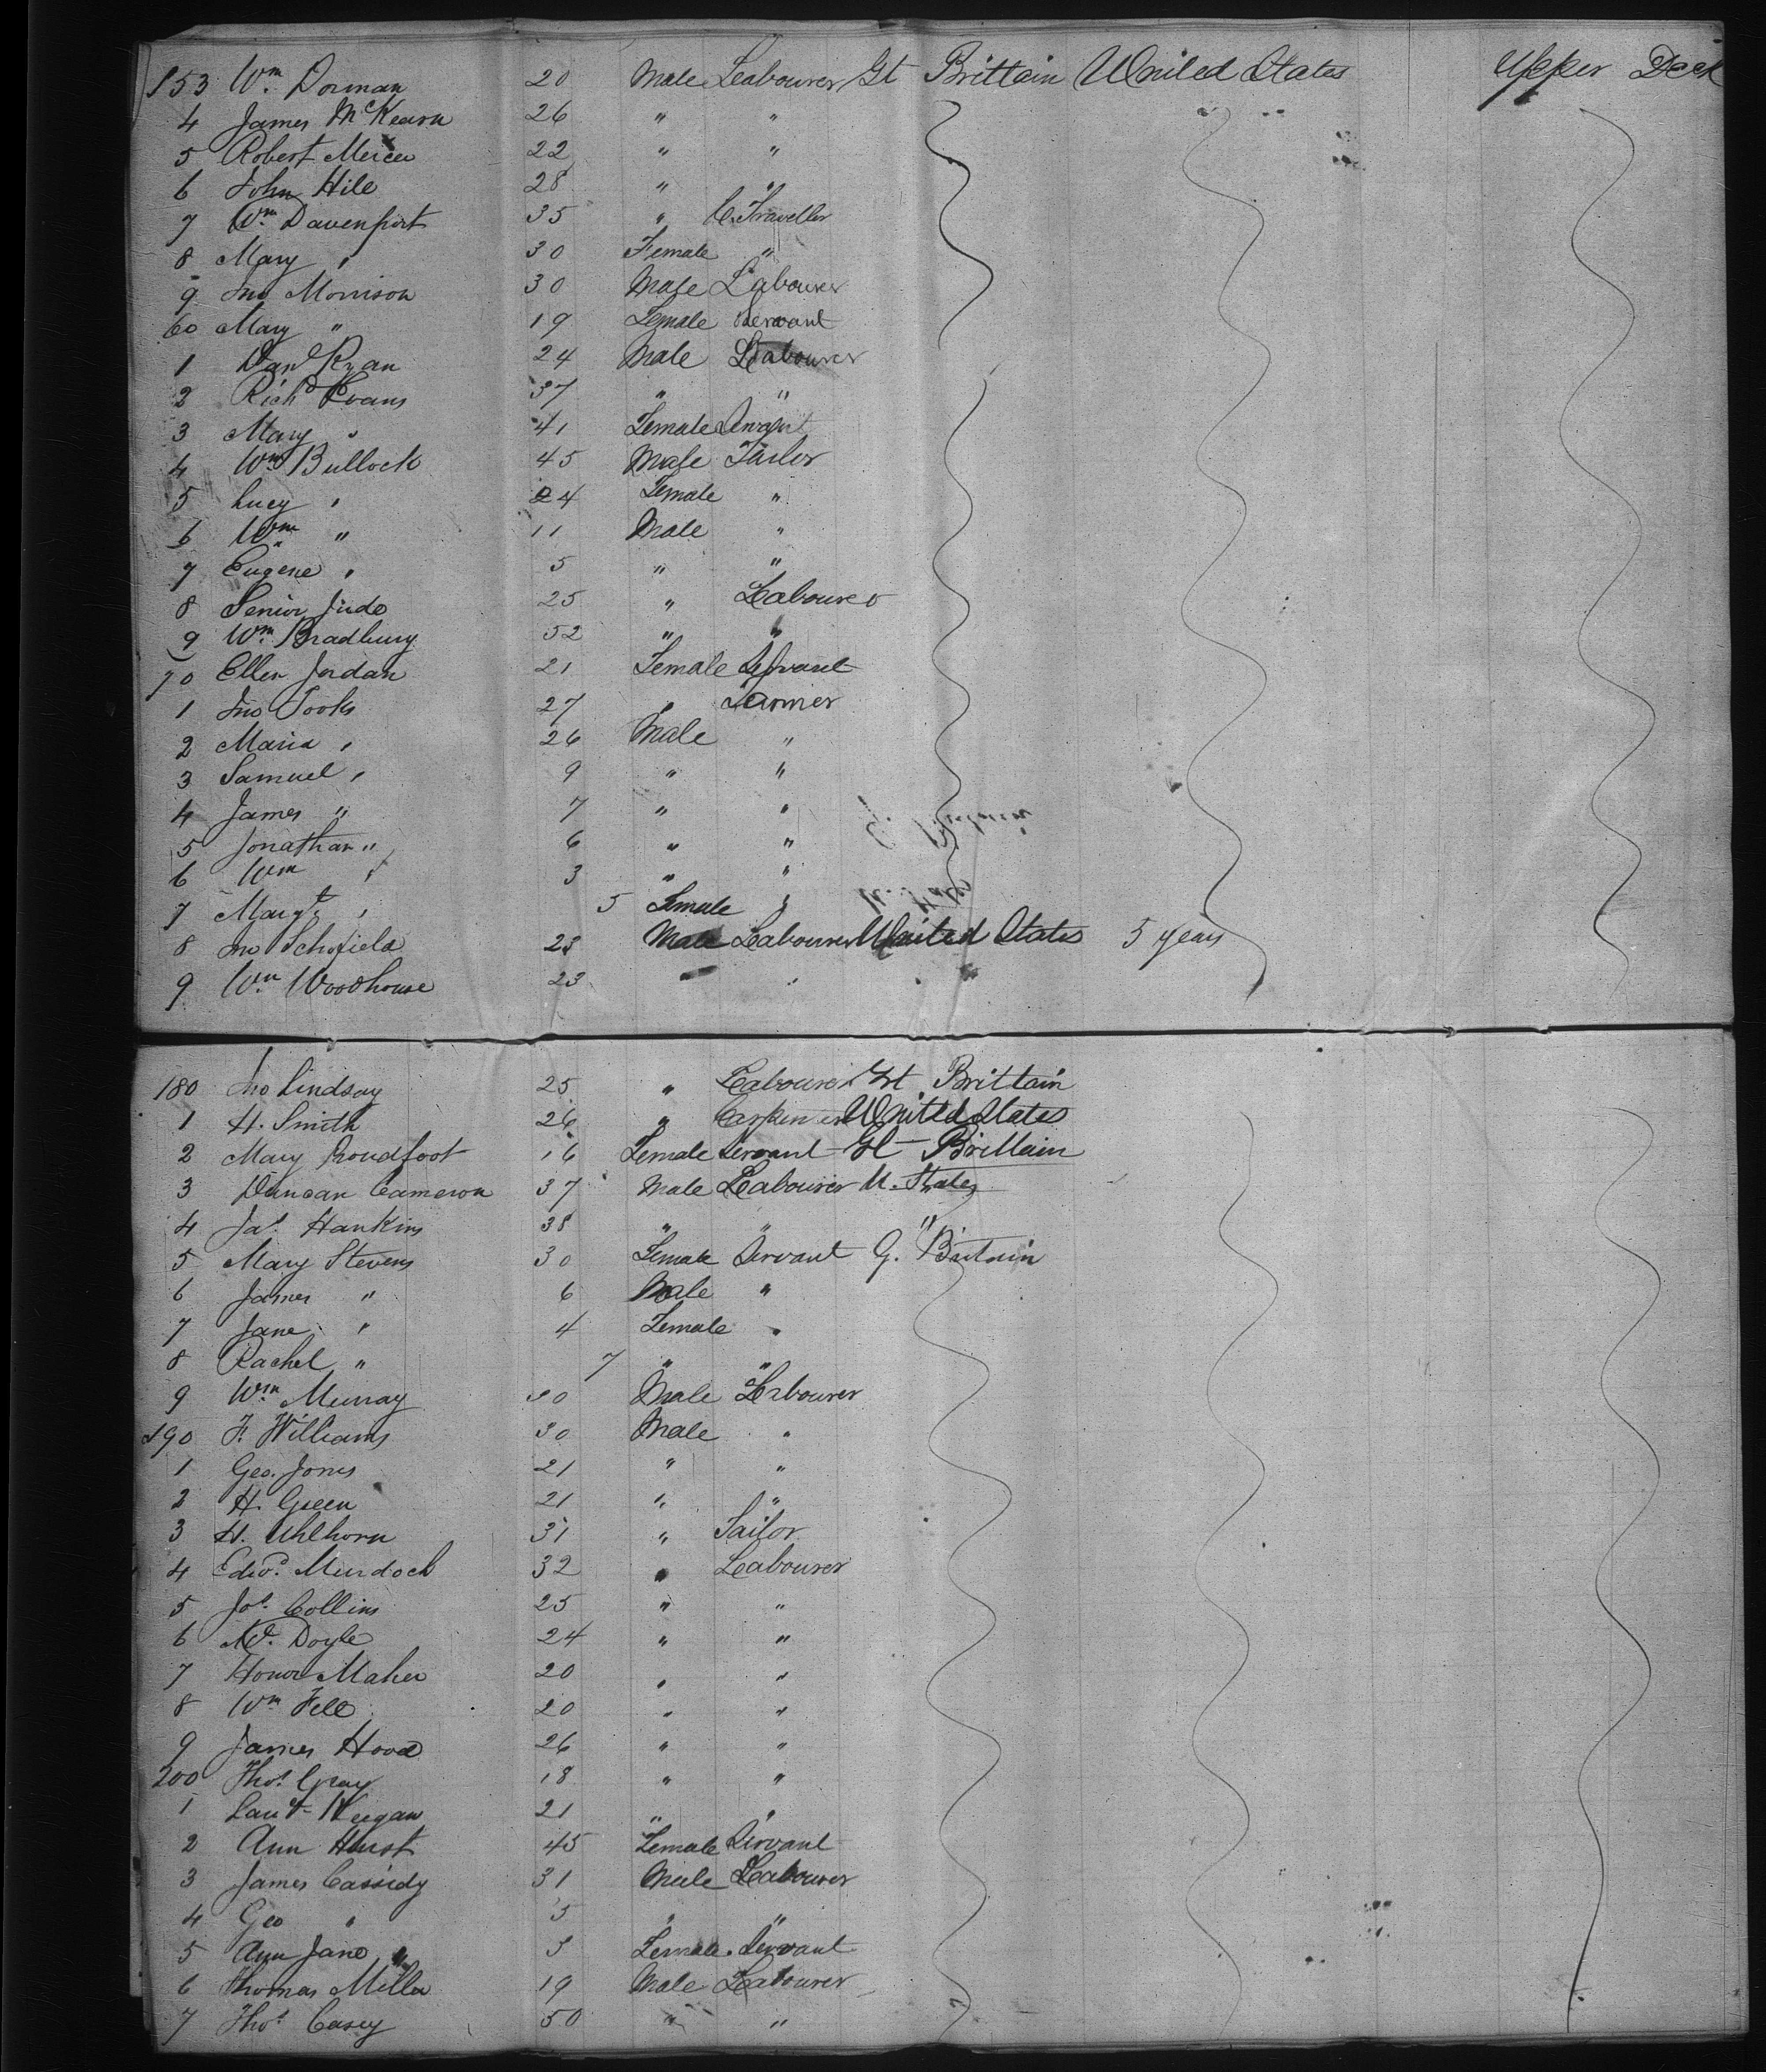 153 Wm Dorman 20 Male Labourer Gt Brittain United States Upper Deck
4 James McKearn 26 " "
5 Robert Mercer 22 " "
6 John Hile 28 " "
7 Wm Davenport 35 " C. Traveller
8 Mary " 30 Female "
9 Jno Morrison 30 Male Labourer
60 Mary " 19 Female Servant
1 Danl Ryan 24 Male Labourer
2 Richd Evans 37 " "
3 Mary " 41 Female Servant
4 Wm Bullock 45 Male Tailor
5 Lucy " 24 Female "
6 Wm " 11 Male "
7 Eugene " 5 " "
8 Senior Jude 25 " Labourer
9 Wm Bradbury 52 " "
70 Ellen Jordan 21 Female Servant
1 Jno Tooks 27 " Farmer
2 Maria " 26 Male "
3 Samuel " 9 " "
4 James " 7 " "
5 Jonathan " 6 " "
6 Wm " 3 " "
7 Margt " 5 Female "
8 Jno Schofield 28 Male Labourer United States 5 years
9 Wm Woodhouse 23 " " " "
180 Jno Lindsay 25 " Labourer Gt Brittain
1 H. Smith 26 " United States
2 Mary Proudfoot 16 Female Servant Gt Brittain
3 Duncan Cameron 37 Male Labourer U. States
4 Jas. Hankins 38 " " "
5 Mary Stevens 30 Female Servant G. Britain
6 James " 6 Male "
7 Jane " 4 Female "
8 Rachel " 7 " "
9 Wm Murray 20 Male Labourer
190 F. Williams 30 Male "
1 Geo. Jones 21 " "
2 H. Green 21 " "
3 H. Uhlhorn 31 " Sailor
4 Edwd. Murdoch 32 " Labourer
5 Jos. Collins 25 " "
6 Doyle 24 " "
7 Honor Maher 20 " "
8 Wm Fell 20 " "
9 James Hood 26 " "
200 Thos. Gray 18 " "
1 Keegan 21 " "
2 Ann Hurst 45 Female Servant
3 James Cassidy 31 Male Labourer
4 Geo " 5 " "
5 Ann Jane " 3 Female Servant
6 Thomas Miller 19 Male Labourer
7 Thos. Casey 50 " "